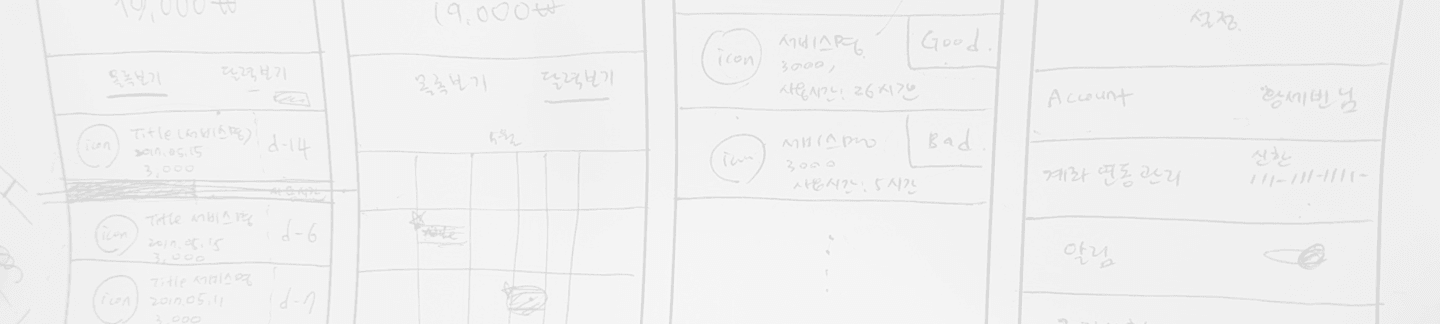 19,000₩
목록보기 달력보기
icon
Title (서비스명)
2017.05.15
3,000
d-14
icon
Title 서비스명
2017.05.15
3,000
d-6
icon
Title 서비스명
2017.05.11
3,000
d-7
19,000₩
목록보기 달력보기
5월
icon
서비스명
3000,
사용시간: 26시간
Good.
icon
서비스명
3000
사용시간: 5시간
Bad.
설정
Account 황세빈 님
계좌 연동 관리
신한
111-111-1111-
알림